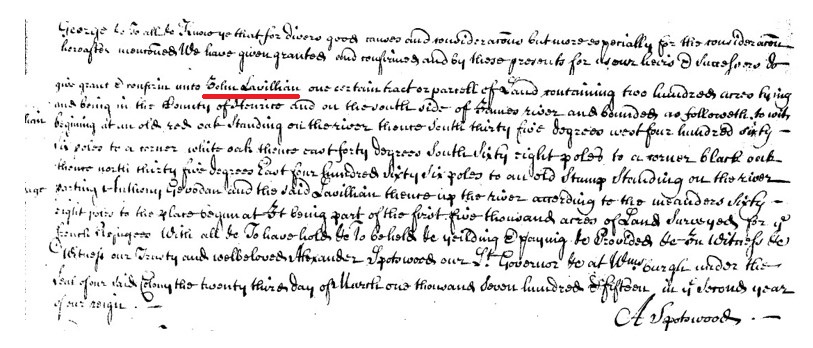 George &c To all &c Know ye that for divers good causes and consideracons but more especially for the consideracon
hereafter mentioned We have given granted and confirmed and by these presents for us our heirs & Successors do
give grant & confirm unto John Lavillian one certain tract or parcell of Land containing two hundred acres lying
and being in the County of Henrico and on the south side of James river and bounded as followeth to wit
begining at an old red oak Standing on the river thence South thirty five degrees west four hundred sixty
six poles to a corner white oak thence east forty degrees South Sixty eight poles to a corner black oak
thence north thirty five degrees East four hundred Sixty six poles to an old Stump Standing on the river
parting Anthony Gevodan and the said Lavillian thence up the river according to the meanders Sixty
eight poles to the place begun at It being part of the first five thousand acres of Land Surveyed for ye
french Refugees With all &c To have hold &c To be held &c yeilding & paying &c Provided &c In Witness &c
Witness our Trusty and welbeloved Alexander Spotswood our Lt Governor &c at Wmsburgh under the
seal of our said Colony the twenty third day of March one thousand Seven hundred & fifteen in ye Second year
of our reign
A Spotswood